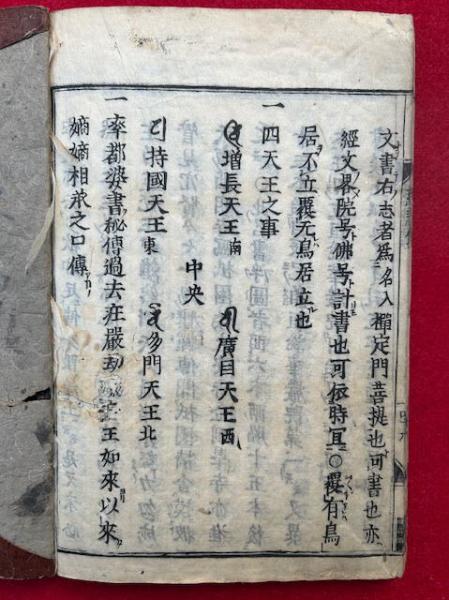 文書右志者為名入禪定門菩提也ト可書也亦
經文畧院号ト佛号ト計書也可依時冝○覆ニ有鳥
居不立覆无ハ鳥居立也
一四天王之事
増長天王南　廣目天王西
中央
持國天王東　多門天王北
一率都婆書秘傳過去荘嚴劫王如來以來
嫡嫡相承之口傳